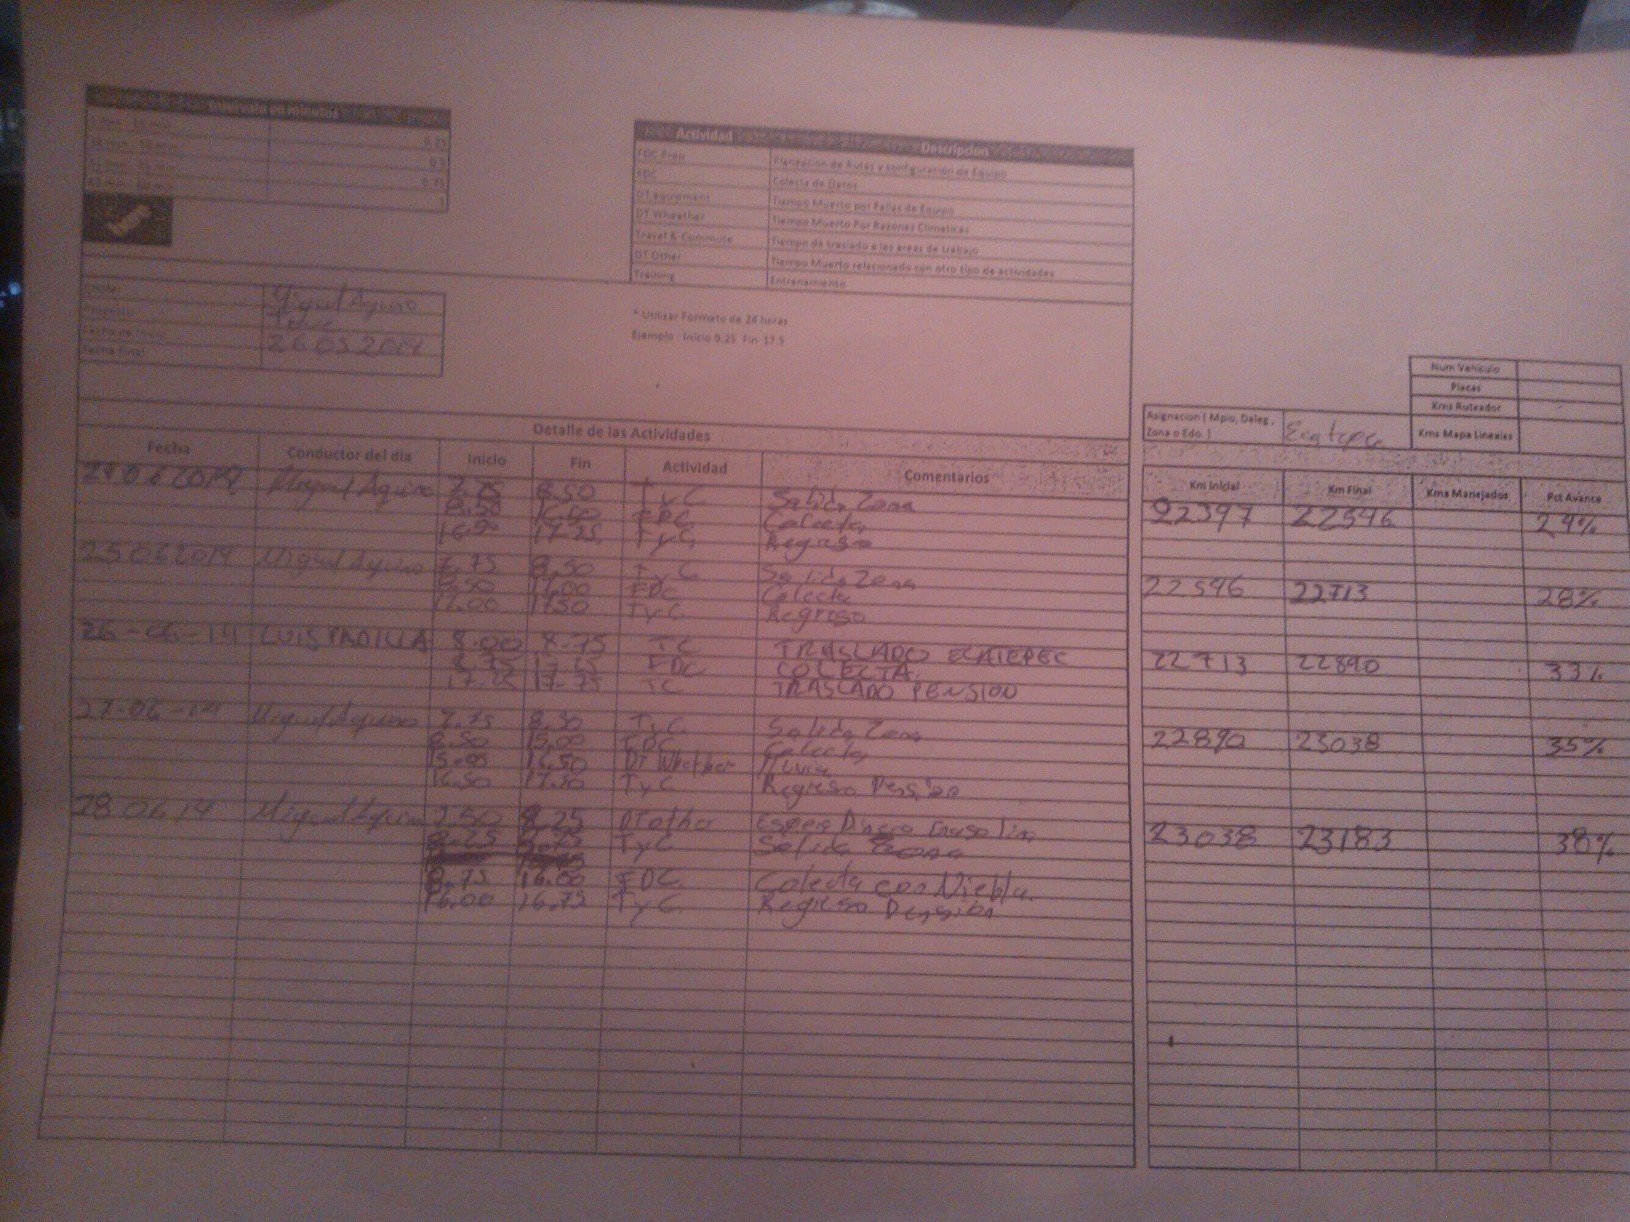 Intervalo en minutos
1 min - 15 min 0.25
16 min - 30 min 0.5
31 min - 45 min 0.75
45 min - 60 min 1
Actividad Descripcion
FDC-Prep Planeacion de Rutas y configuración de Equipo
FDC Colecta de Datos
DT equipment Tiempo Muerto por Fallas de Equipo
DT Wheather Tiempo Muerto Por Razones Climaticas
Travel & Commute Tiempo de traslado a las areas de trabajo
DT Other Tiempo Muerto relacionado con otro tipo de actividades
Training Entrenamiento
Miguel Aquino
Proyecto
Fecha de Inicio 26 05 2014
Fecha Final
* Utilizar Formato de 24 horas
Ejemplo : Inicio 9.25 Fin 17.5
Num Vehiculo
Placas
Kms Ruteador
Kms Mapa Lineales
Asignacion ( Mpio, Deleg, Zona o Edo. ) Ecatepec
Detalle de las Actividades
Fecha Conductor del dia Inicio Fin Actividad Comentarios Km Inicial Km Final Kms Manejados Pct Avance
24 06 2014 Miguel Aquino 7.75 8.50 TyC Salida Zona 22397 22546 24%
8.50 16.50 FDC Colecta
16.50 17.25 TyC Regreso
25 06 2014 Miguel Aquino 7.75 8.50 TyC Salida Zona 22546 22713 28%
8.50 17.00 FDC Colecta
17.00 17.50 TyC Regreso
26-06-14 LUIS PADILLA 8.00 8.75 TC TRASLADO ECATEPEC 22713 22890 33%
8.75 17.25 FDC COLECTA.
17.25 17.75 TC TRASLADO PENSION
27-06-14 Miguel Aquino 7.75 8.50 TyC Salida Zona 22890 23038 35%
8.50 15.00 FDC Colecta
15.00 16.50 DT Whether lluvia
16.50 17.50 TyC Regreso Pension
28 06 14 Miguel Aquino 7.50 8.25 DTother Espera Dinero Gasolina 23038 23183 38%
8.25 8.75 TyC Salida Zona
8.75 16.00 FDC Colecta con Niebla.
16.00 16.75 TyC Regreso Pension